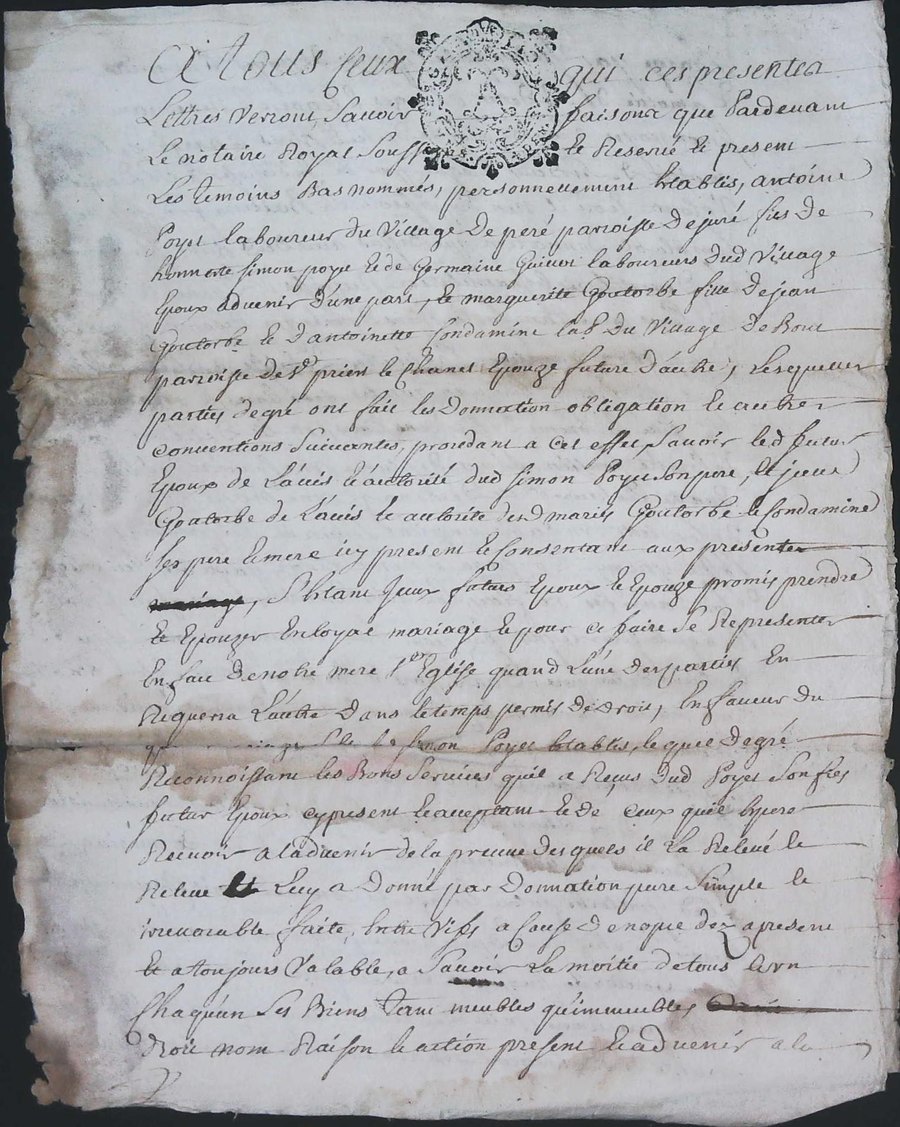 A tous ceux qui ces presentes
Lettres Verront, Savoir faisons que Pardevant
Le notaire Royal Souss et Reservé et present
Les temoins Bas nommés, personnellement Etablis, antoine
Poyet laboureur du Village De peré paroisse de juré fils de
honnete Simon poyet et de Germaine laboureurs dud Village
Epoux advenir d'une part, et marguerite Goutorbe fille de jean
Goutorbe et d'antoinette Condamine lab du Village de Bout
paroisse de St priest le Epouze future d'autre, Lesquelles
parties degré ont fait les Donnation obligation et autres
conventions Suivantes, procedant a cet effet, Savoir led futur
Epoux de L'avis et autorité dud Simon Poyet Son pere, et
Goutorbe de L'avis et autorité desd mariés Goutorbe et Condamine
ses pere et mere icy present et Consentant aux presentes
mariage, futurs Epoux et Epouze promis prendre
et Epouzer En loyal mariage et pour ce faire Se Representer
En face de notre mere Ste Eglise quand L'une des parties En
Requerra L'autre Dans le temps permis de droit, En faveur du
Simon Poyet Etablis, lequel degré
Reconnoissant les Bons Services qu'il a Reçus dud Poyet Son fils
futur Epoux cy present et acceptant et de ceux qu'il Espere
Recevoir a l'advenir de la preuve desquels il La Relevé et
Releve Luy a Donné par Donnation pure Simple et
irrevocable faite, Entre Vifs a Cause de nopce dez apresent
et a toujours Valable, a Savoir La moitié de tous et un
Chaqu'un Ses Biens Tant meubles qu'immeubles
Droit nom Raison et action present et advenir a la